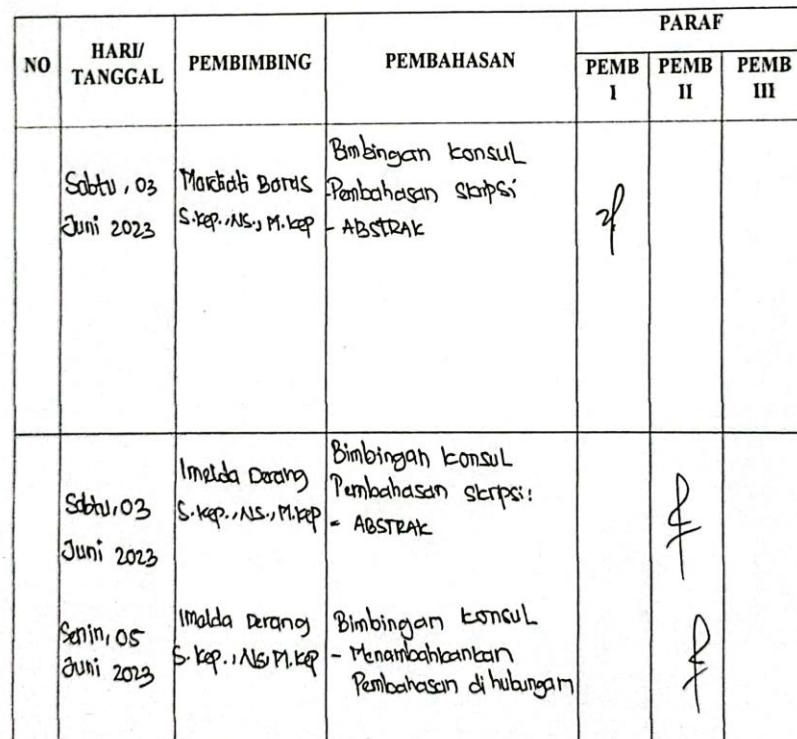 NO HARI/ TANGGAL PEMBIMBING PEMBAHASAN PARAF
PEMB I PEMB II PEMB III
Sabtu, 03
Juni 2023
Mardiati Barus
S.Kep., Ns., M.Kep
Bimbingan konsul
Pembahasan skripsi
- ABSTRAK
Sabtu, 03
Juni 2023
Imelda Derang
S.Kep., Ns., M.Kep
Bimbingan konsul
Pembahasan skripsi:
- ABSTRAK
Senin, 05
Juni 2023
Imelda Derang
S.Kep., Ns, M.Kep
Bimbingan konsul
- Menambahkankan
Pembahasan di hubungan